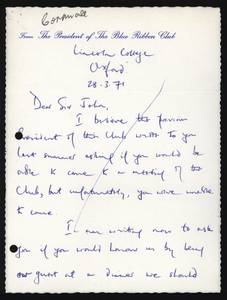 Cornwall
From The President of The Blue Ribbon Club
Lincoln College
Oxford
28.3.71
Dear Sir John,
I believe the previous
President of this Club wrote to you
last summer asking if you would be
able to come to a meeting of the
Club, but unfortunately, you were unable
to come.
I am writing now to ask
you if you would honour us by being
our guest at a dinner we should